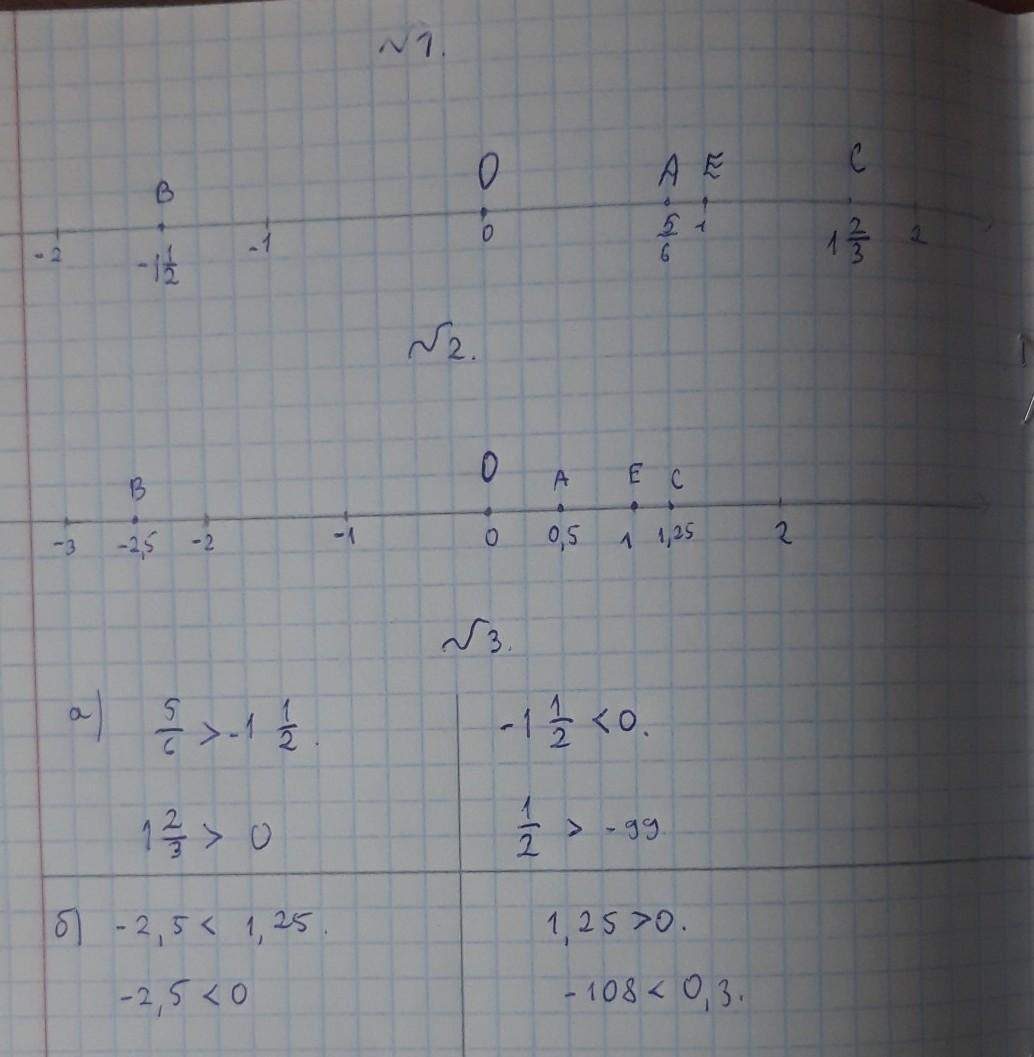 №1.
B O A E C
-2 -1 1/2 -1 0 5/6 1 1 2/3 2
№2.
B O A E C
-3 -2,5 -2 -1 0 0,5 1 1,25 2
№3.
а) 5/6 > -1 1/2. -1 1/2 < 0.
1 2/3 > 0 1/2 > -99
б) -2,5 < 1,25. 1,25 > 0.
-2,5 < 0 -108 < 0,3.